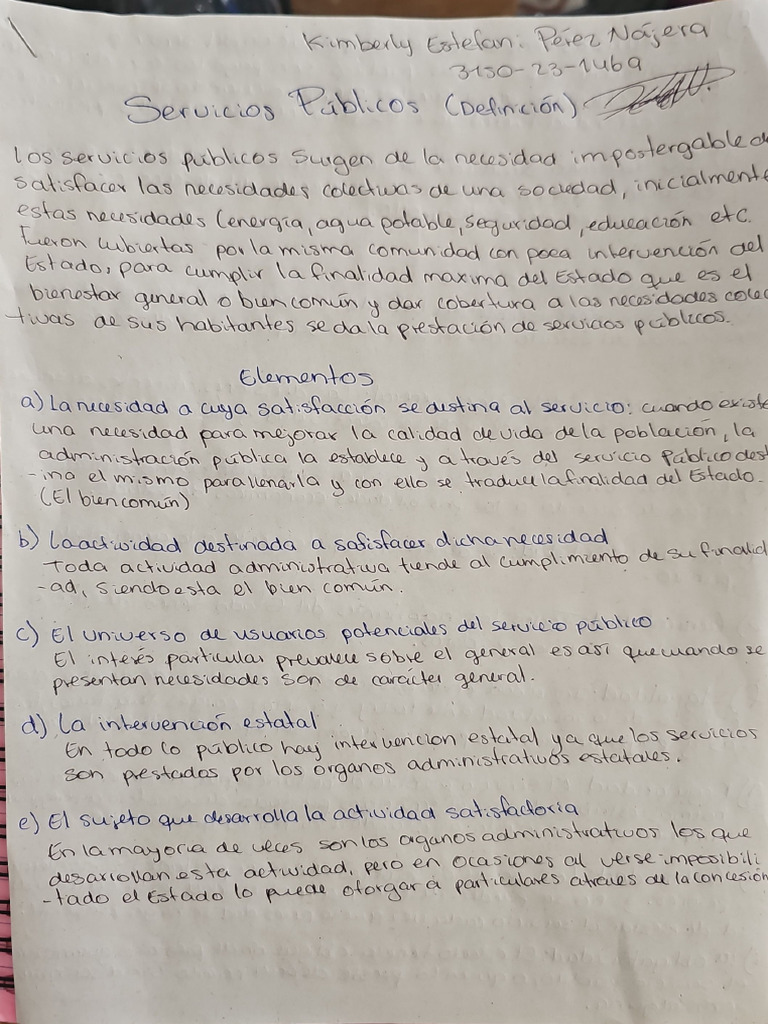 Kimberly Estefani Pérez Nájera
3150-23-1469
Servicios Públicos (Definición)
Los servicios públicos surgen de la necesidad impostergable de
satisfacer las necesidades colectivas de una sociedad, inicialmente
estas necesidades (energía, agua potable, seguridad, educación etc.
Fueron cubiertas por la misma comunidad con poca intervención del
Estado, para cumplir la finalidad maxima del Estado que es el
bienestar general o bien común y dar cobertura a las necesidades colec
-tivas de sus habitantes se da la prestación de servicios públicos.
Elementos
a) La necesidad a cuya satisfacción se destina al servicio: cuando existe
una necesidad para mejorar la calidad de vida de la población, la
administración pública la establece y a través del servicio Público dest
-ina el mismo para llenarla y con ello se traduce la finalidad del Estado.
(El bien común)
b) La actividad destinada a satisfacer dicha necesidad
Toda actividad administrativa tiende al cumplimiento de su finalid
-ad, siendo esta el bien común.
c) El universo de usuarios potenciales del servicio público
El interés particular prevalece sobre el general es así que cuando se
presentan necesidades son de carácter general.
d) La intervención estatal
En todo lo público hay intervencion estatal ya que los servicios
son prestados por los organos administrativos estatales.
e) El sujeto que desarrolla la actividad satisfactoria
En la mayoria de veces son los organos administrativos los que
desarrollan esta actividad, pero en ocasiones al verse imposibili
-tado el Estado lo puede otorgar a particulares atraves de la concesión